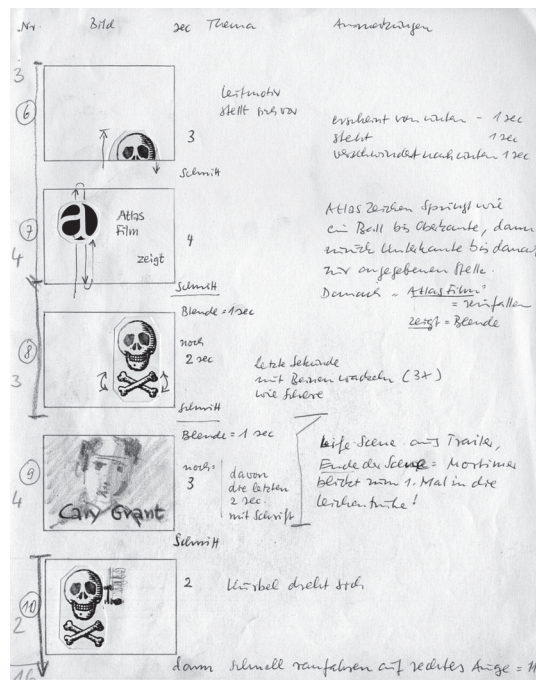 Nr. Bild sec Thema Anmerkungen
3
6
Leitmotiv
stellt sich vor
3
erscheint von unten - 1 sec
steht 1 sec
verschwindet nach unten 1 sec
Schnitt
7
4
a
Atlas
Film
zeigt
4
Atlas Zeichen springt wie
ein Ball bis Oberkante, dann
zurück Unterkante bis dann
zur angegebenen Stelle.
Danach "Atlas Film"
= reinfallen
zeigt = Blende
Schnitt
8
3
Blende = 1 sec
noch
2 sec
letzte Sekunde
mit Beinen wackeln (3x)
wie Schere
Schnitt
9
4
Cary Grant
Blende = 1 sec
noch =
3
davon
die letzten
2 sec.
mit Schrift
Scene aus Trailer,
Ende der Scene = Mortimer
blickt zum 1. Mal in die
Leichentruhe!
Schnitt
10
2
2
Kurbel dreht sich
16
dann schnell ranfahren auf rechtes Auge =